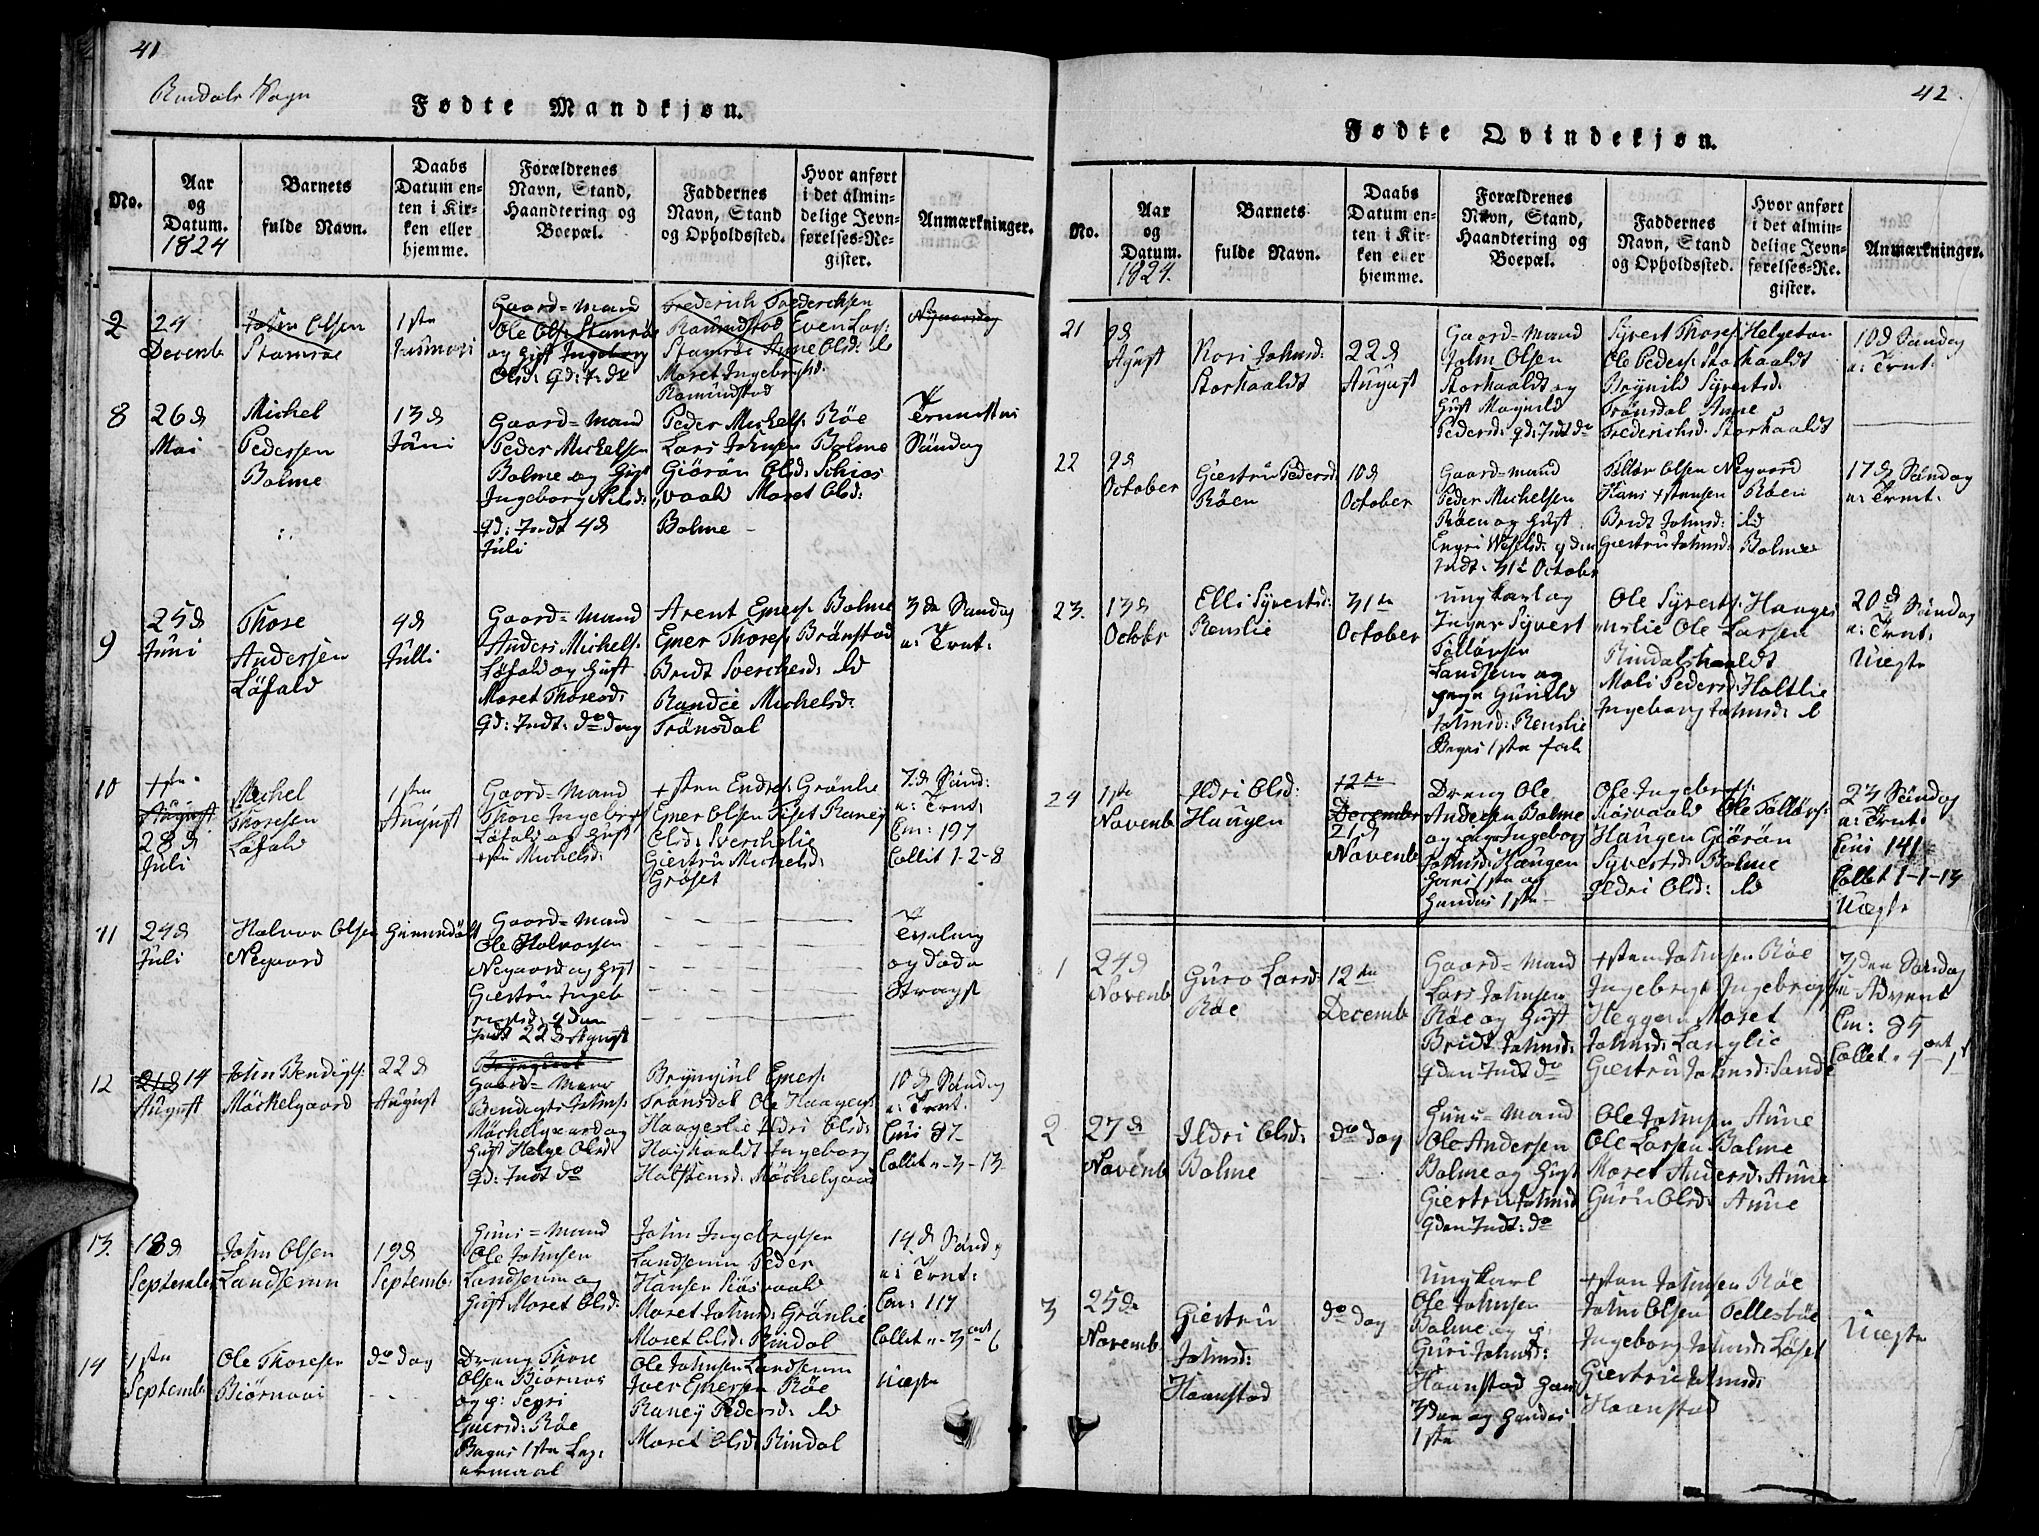 41
Rindals Sogn
Fødte Mandkjøn.
No.
Aar
og
Datum.
1824
Barnets
fulde Navn.
Daabs
Datum en-
ten i Kir-
ken eller
hjemme.
Forældrenes
Navn, Stand,
Haandtering og
Boepæl.
Faddernes
Navn, Stand
og Opholdssted.
Hvor anført
i det almin-
delige Jevn-
førelses-Re-
gister.
Anmærkninger.
2
24
Decemb
John Olsen
Stamrøe
1ste
Gaard-Mand
Ole Ols: Stamrøe
og Hust Ingeborg
Olsd: Gd: 7. de
Frederich Frederichsen
Romundstad Even Lars:
Stamrøe Anne Olsd: ib
Maret Ingebrigtsd:
Romundstad
8
26 d
Mai
Michel
Pedersen
Bolme
13 d
Juni
Gaard-Mand
Peder Michelsen
Bolme og Hust
Ingeborg Nilsd:
Gd: Indt 4 d
Juli
Peder Michels: Røe
Lars Johnsen Bolme
Giørøn Olsd: Schios
vaald Maret Olsd:
Bolme
Søndag
9
25 d
Juni
Thore
Andersen
Løfald
4 d
Julli
Gaard-Mand
Anders Michels:
Løfald og Hust
Maret Thoresd:
Gd: Indt: do dag
Arent Ener: Bolme
Ener Thores: Brønstad
Bridt Sverchesd: ib
Randie Michelsd:
Trønsdal
3 de Søndag
a: Trnt:
10
1ste
August
28 d
Juli
Michel
Thoresen
Løfald
1ste
August
Gaard-Mand
Thore Ingebrigt
Løfald og Hust
Michelsd:
+sten Endres: Grønlie
Ener Olsen Fiset Raney
Olsd: Sverchslie
Giertru Michelsd:
Grøset
7 d Sønd:
a: Trnt:
Em: 197
Collit 1-2-8
11
24 d
Juli
Halvor Olsen
Negaard
Hiemmdøbt
Gaard-Mand
Ole Halvorsen
Negaard og Hust
Giertru Ingeb
rigtsd: gden
Indt 22 d August
Tvaling
og døde
Stragst
12
21 d 14
August
John Bendigts:
Møchelgaard
22 d
August
Gaard-Mand
Bendigt Johns:
Møchelgaard og
Hust Helge Olsd:
Gd: Indt do
Bryngiul Eners:
Trønsdal Ole Haagens:
Haagenslie Ildri Olsd:
Ingeborg
Halstensd: Møchelgaard
10 d Søndag
a: Trnt.
Em 87
Collet "-3-13
13.
18 d
September
John Olsen
Landsemm
19 d
Septemb:
Huus-Mand
Ole Johnsen
Landsemm og
Hust Maret Olsd:
John Ingebrigtsen
Landsemm Peder
Hansen Røsvaald
Maret Johnsd: Grønlie
Maret Olsd: Rindal
14 d Sønd
a: Trnt:
Em: 117
Collet "-3 ort 6
14
1ste
Septemb
Ole Thoresen
Biørnaas
do dag
Dreng Thore
Olsen Biørnaas
og g: Segri
Enersd: Røe
Beges 1ste Leg:
ermaal
Ole Johnsen Landsemm
Iver Enersen Røe
Raney Pedersd: ib
Maret Olsd: Rindal
Uægte
42.
Fødte Qvindekjøn.
No.
Aar
og
Datum.
1824.
Barnets
fulde Navn.
Daabs
Datum en-
ten i Kir-
ken eller
hjemme.
Forældrenes
Navn, Stand,
Haandtering og
Boepæl.
Faddernes
Navn, Stand
og Opholdssted.
Hvor anført
i det almin-
delige Jevn-
førelses-Re-
gister.
Anmærkninger.
21
9 d
August
Kari Johnsd:
Storhaaldt
22 d
August
Gaard-Mand
John Olsen
Storhaaldt og
Hust Magnild
Pedersd: gd: Indt do
Syvert Thores: Helgetun
Ole Peders: Storhaaldt
Brynild Syvertsd:
Trønsdal Anne
Frederichsd: Storhaaldt
10 d Søndag
a: Trnt:
22
9 d
October
Giertru Pedersd
Røen
10 d
October
Gaard-Mand
Peder Michelsen
Røen og Hust
gden
Indt: 31te October
Tølløv Olsen Negaard
Hans +stensen Røen
Bridt Johnsd: ib
Giertru Johnsd: Bolme
17 d Søndag
a: Trnt:
23.
13 d
Octobr
Elli Syvertsd:
Renslie
31te
October
ungkarl og
Syvert
Tølløvsen
Landsem og
Gunild
Johnsd: Renslie
Beges 1ste forh
Ole Syverts: Haagen
slie Ole Larsen
Rindalshaaldt
Mali Pedersd: Holtlie
Ingeborg Johnsd: ib
20 d Søndag
a: Trnt:
Uægte
24
1ste
Novemb
Ildri Olsd:
Haugen
12te
December
21 d
Novemb
Dreng Ole
Andersen Bolme
og pige Ingeborg
Johnsd: Haugen
Hans 1ste og
Hendes 1ste
Ole Ingebrigts:
Røsvaald Ole Tølløvs:
Haugen Giørøn
Syvertsd: Bolme
Ildri Olsd: ib
23 Søndag
a: Trnt:
Em 141
Collet 1-1-13
Uægte
1
24 d
Novemb
Guro Larsd:
Røe
12te
Decemb
Gaard-Mand
Lars Johnsen
Røe og Hust
Bridt Johnsd:
gden Indt do
+sten Johnsen Røe
Ingebrigt Ingebrigts:
Heggem Maret
Johnsd: Langlie
Giertru Johnsd: Sande
3 den Søndag
i Advent
Em: 85
Collet "-4 ort-1 s
2
27 d
Novemb
Ildri Olsd:
Bolme
do dag
Huus-Mand
Ole Andersen
Bolme og Hust
Giertru Johnsd
gden Indt: do
Ole Johnsen Aune
Ole Larsen Bolme
Maret Andersd: Aune
Guru Olsd: Aune
3
25 d
Novemb
Giertru
Johnsd:
Haanstad
do dag
Ungkarl
Ole Johnsen
Bolme og g:
Guri Johnsd:
Haanstad Hans
3den og Hendes
1ste
+sten Johnsen Røe
John Olsen Aellesbøe
Ingeborg Johnsd: Løset
Giertru Johnsd:
Haanstad
Uægte